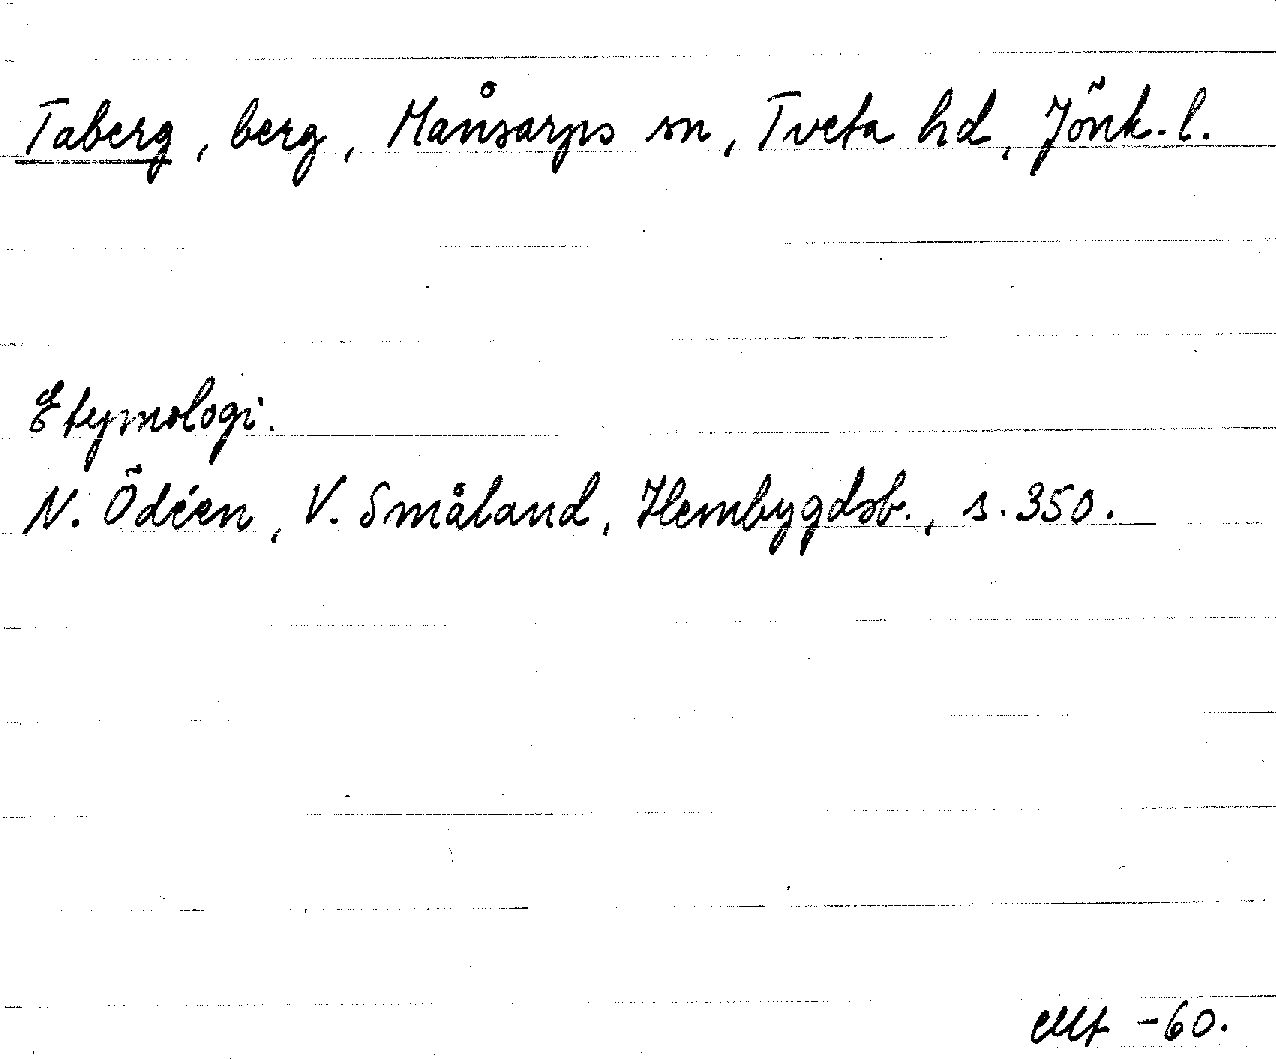 Taberg, berg, Månsarps sn, Tveta hd, Jönk. l.
Etymologi.
N. Ödéen, V. Småland, Hembygdsb., s. 350.
-60.